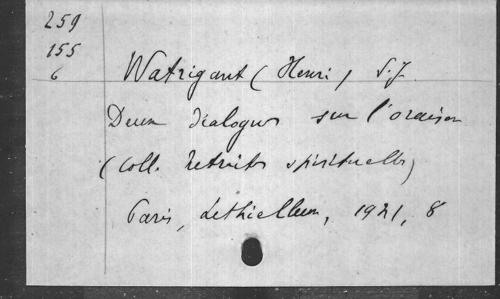 259
155
6
Watrigant (Henri) S.J.
Deux dialogues sur l'oraison
(Coll. retraites spirituelles)
Paris, Lethielleux, 1921, 8